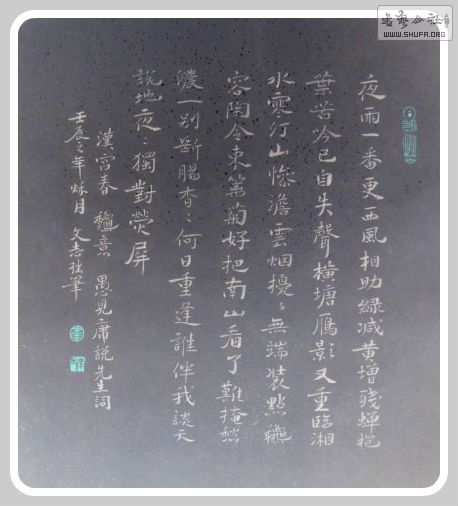 夜雨一番更西風相助綠减黄增殘蟬抱
葉苦吟已自失聲橫塘鴈影又重臨湘
水寒汀山慘澹雲烟擾〻無端裝點龝
容陶令東籬菊好把南山看了難掩愁
濃一别斷腸杳〻何日重逢誰伴我談天
說地夜〻獨對熒屏
漢宫春 龝意 愚見庸說先生詞
壬辰之年秌月 文志強筆
書藝公社
WWW.SHUFA.ORG